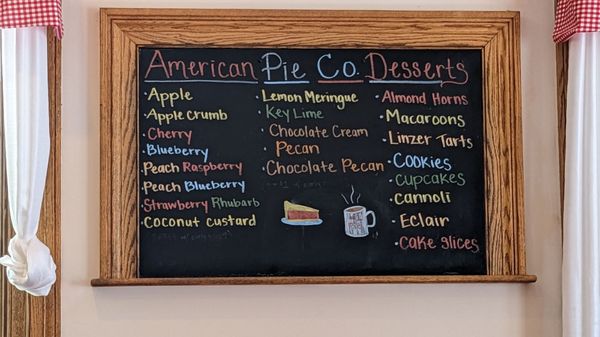 American Pie Co. Desserts
·Apple
·Apple Crumb
·Cherry
·Blueberry
·Peach Raspberry
·Peach Blueberry
·Strawberry Rhubarb
·Coconut custard
·Lemon Meringue
·Key Lime
·Chocolate Cream
·Pecan
·Chocolate Pecan
·Almond Horns
·Macaroons
·Linzer Tarts
·Cookies
·Cupcakes
·Cannoli
·Eclair
·Cake Slices